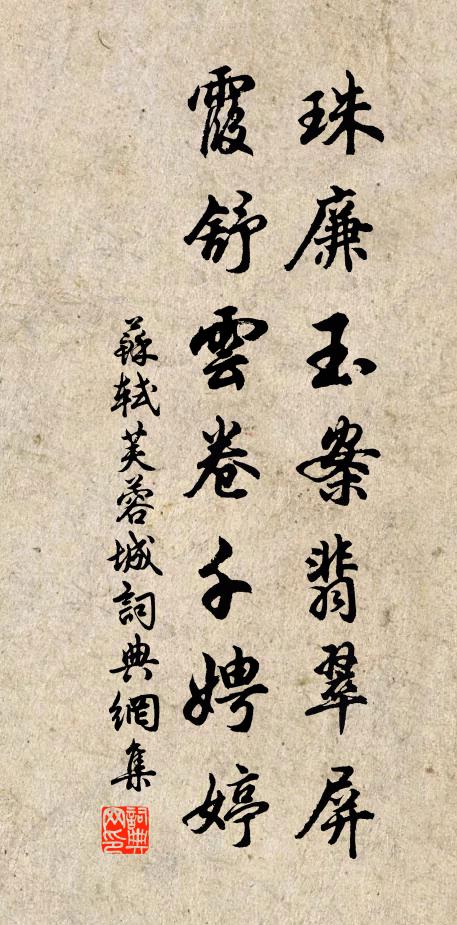 珠廉玉案翡翠屏
霞舒雲卷千娉婷
蘇軾芙蓉城詞典網集
詞典网印